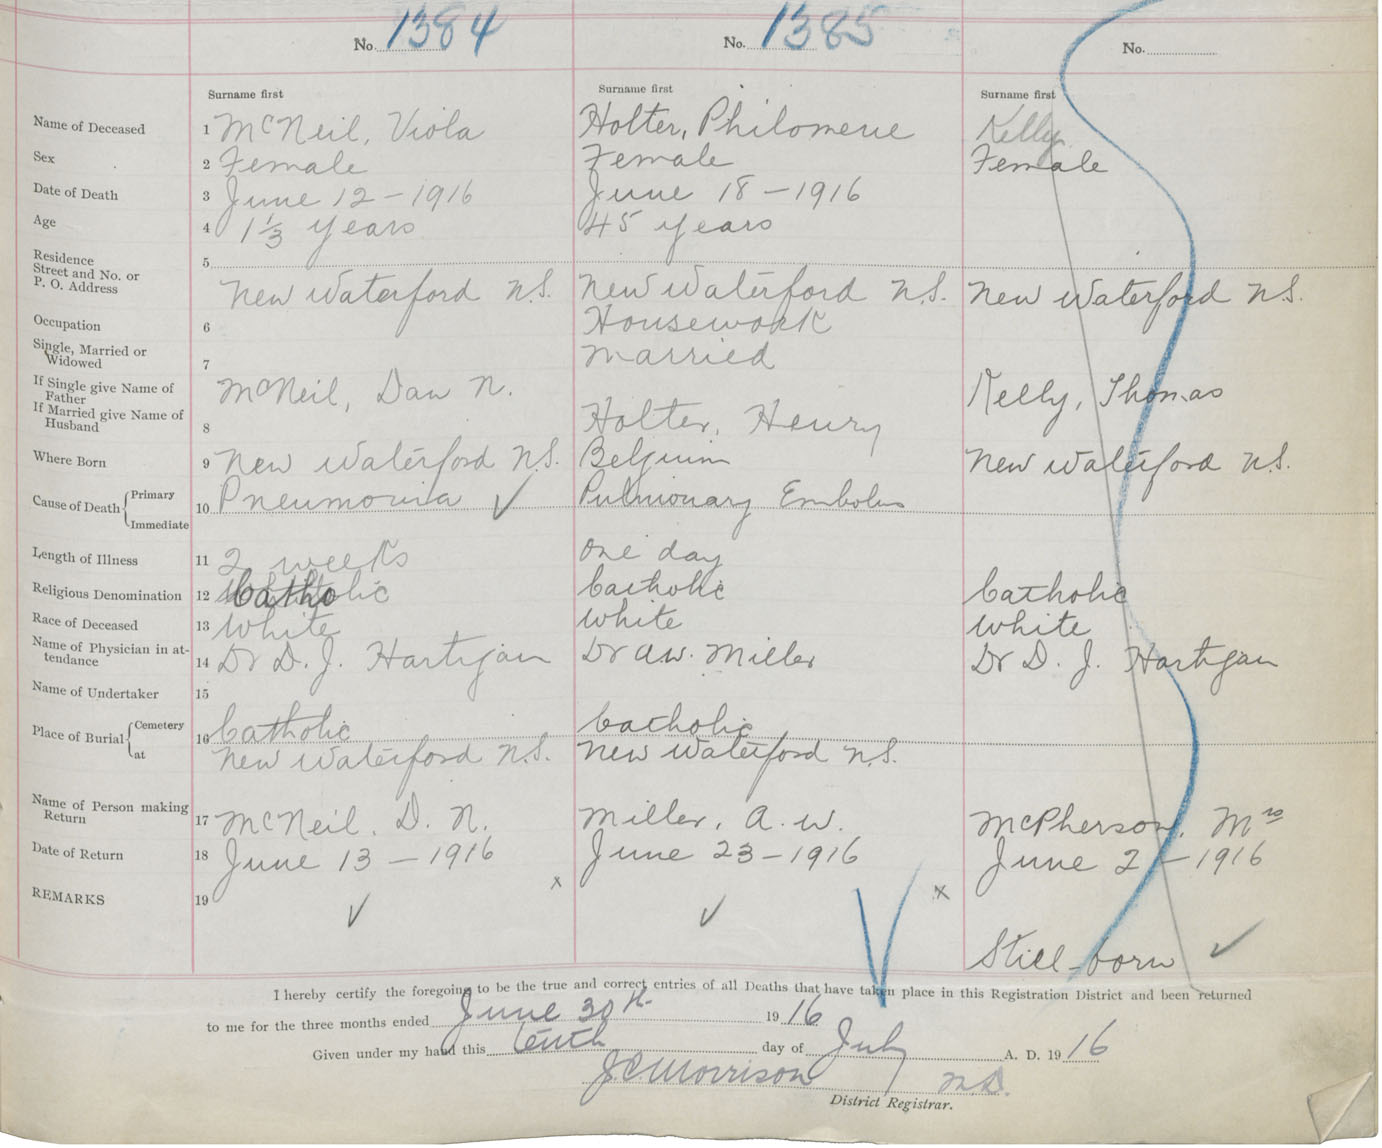 No. 1384 No. 1385 No.
Surname first Surname first Surname first
Name of Deceased 1 McNeil, Viola Holter, Philomene Kelly
Sex 2 Female Female Female
Date of Death 3 June 12 - 1916 June 18 - 1916
Age 4 1 1/3 years 45 years
Residence
Street and No. or
P. O. Address 5 New Waterford N.S. New Waterford N.S. New Waterford N.S.
Occupation 6 Housework
Single, Married or
Widowed 7 Married
If Single give Name of
Father McNeil, Dan N. Kelly, Thomas
If Married give Name of
Husband 8 Holter, Henry
Where Born 9 New Waterford N.S. Belguim New Waterford N.S.
Cause of Death { Primary
Immediate 10 Pneumonia ✓ Pulmionary Embolus
Length of Illness 11 2 weeks One day
Religious Denomination 12 Catholic Catholic Catholic
Race of Deceased 13 White White White
Name of Physician in at-
tendance 14 Dr D. J. Hartigan Dr A.W. Miller Dr D. J. Hartigan
Name of Undertaker 15
Place of Burial { Cemetery 16 Catholic Catholic
at New Waterford N.S. New Waterford N.S.
Name of Person making
Return 17 McNeil, D. N. Miller, A. W. McPherson, Mrs
Date of Return 18 June 13 - 1916 June 23 - 1916 June 2 - 1916
REMARKS 19 ✓ x ✓ x
Still-born ✓
I hereby certify the foregoing to be the true and correct entries of all Deaths that have taken place in this Registration District and been returned
to me for the three months ended June 30th 1916
Given under my hand this tenth day of July A. D. 1916
J.C. Morrison M.D.
District Registrar.